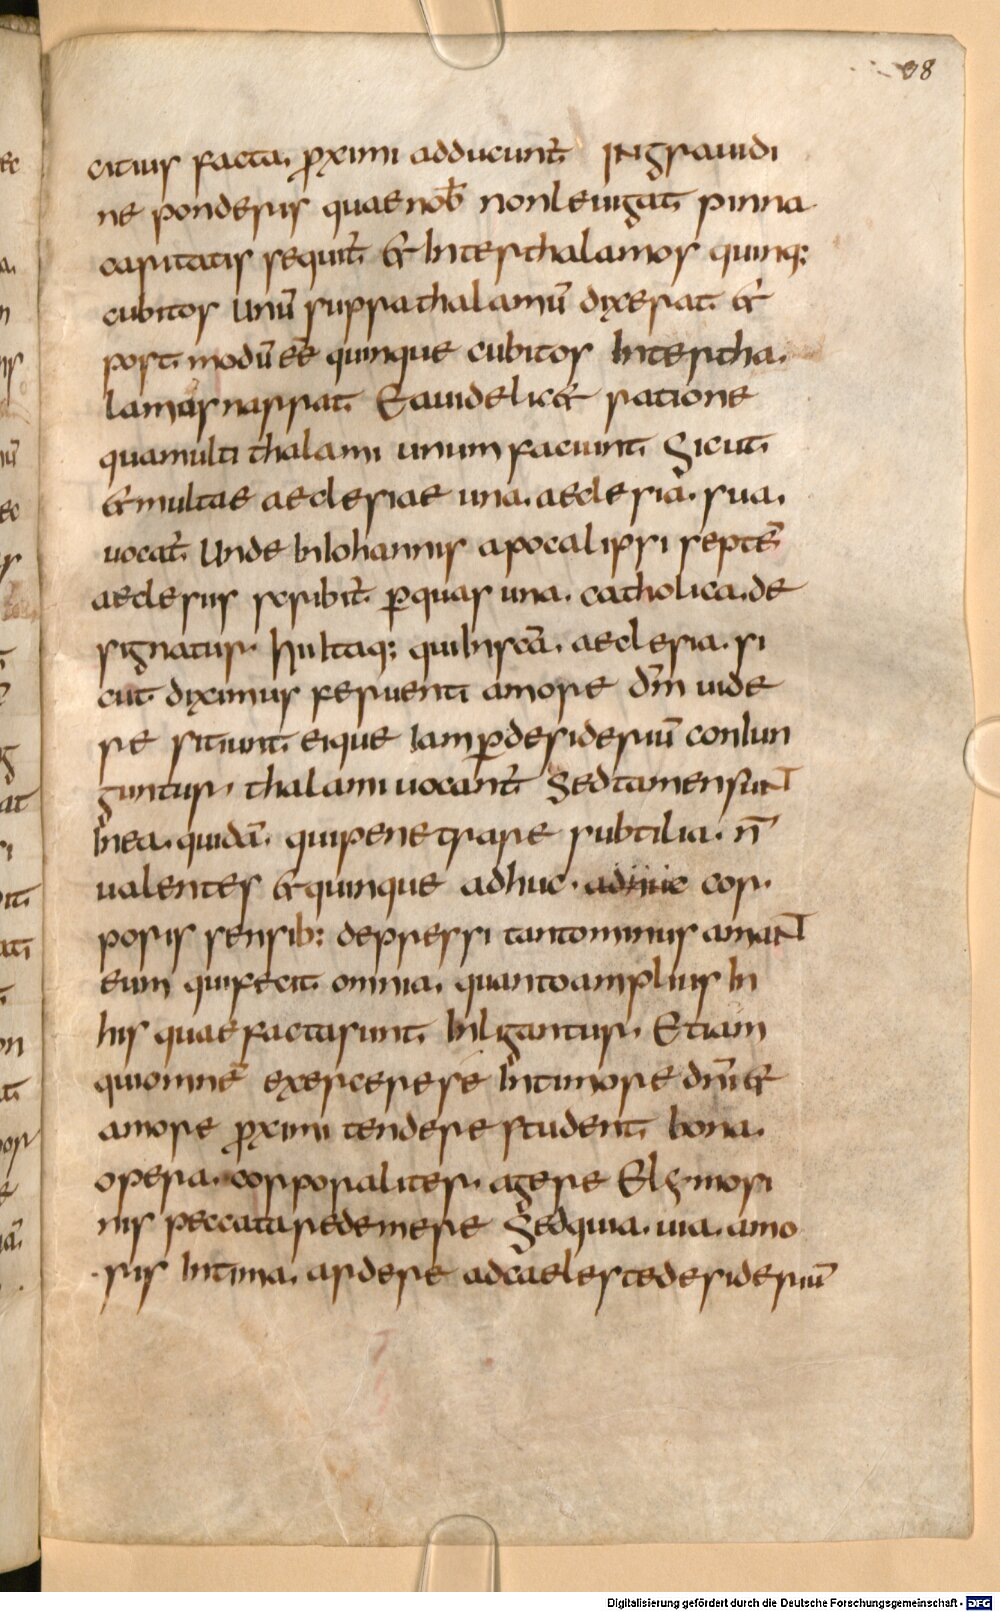 98
citius facta. p̄ximi adducunt̄ INgravidi
ne ponderis quae nob̄ non levigat pinna
caritatis sequit̄ & Inter thalamos quinq;
cubitos Unū supra thalamū dixerat &
post modū eē quinque cubitos Inter tha.
lamus narrat Ea videlic& ratione
qua multi thalami unum faciunt Sicut
& multae aeclesiae una. aeclesia. sua.
vocat̄. Unde In Iohannis apocalipsi septē
aeclesiis scribit̄. p̱ quas una. catholica. de
signatur. Multaq; qui In scā. aeclesia. si
cut diximus ferventi amore dm̄ vide
re sitiunt. eique Iam p̱ desideriū conIun
guntur. thalami vocant̄ Sed tamen sunT
In ea. quidā. qui penetrare subtilia. n̄
valentes & quinque adhuc. adhuc cor.
poris sensib; depressi tanto minus amanT
eum qui fecit omnia. quanto amplius In
his quae facta sunt InLigantur. Etiam
qui omnē exercere se In timore dn̄i &
amore p̄ximi tendere student bona.
opera. corporaliter. agere Elymosi
nis peccata redemere Sed quia. via. amo
ris Intima. ardere ad caeleste desideriū
Digitalisierung gefördert durch die Deutsche Forschungsgemeinschaft - DFG